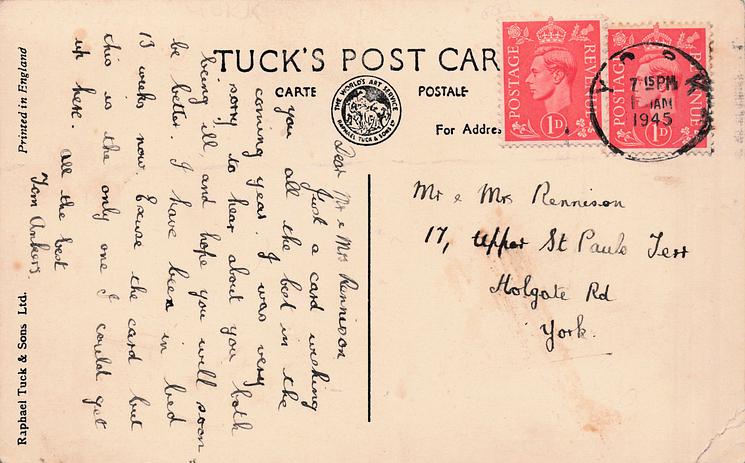 TUCK'S POST CAR
CARTE POSTALE
THE WORLD'S ART SERVICE
RAPHAEL TUCK & SONS LTD
For Addres
POSTAGE REVENUE
1D
POSTAGE ENUE
1D
7 15 PM
JAN
1945
Mr & Mrs Rennison
17, Upper St Pauls Terr
Holgate Rd
York.
Dear Mr & Mrs Rennison
Just a card wishing
you all the best in the
coming year. I was very
sorry to hear about you both
being ill, and hope you will soon
be better. I have been in bed
13 weeks now. Excuse the card but
this is the only one I could get
up here.
all the best
Tom Ankers.
Printed in England
Raphael Tuck & Sons Ltd.